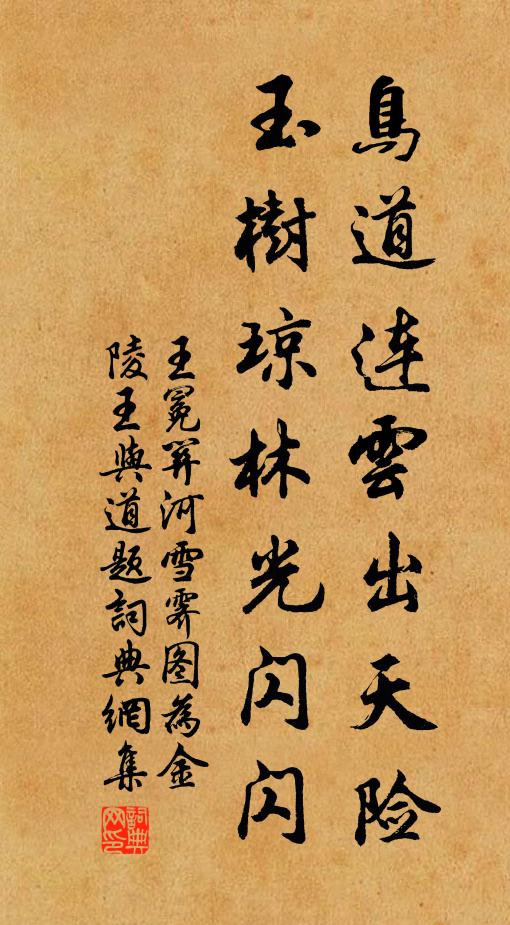 鳥道連雲出天险
玉樹琼林光闪闪
王冕關河雪霽图為金
陵王與道题詞典網集
詞典网印